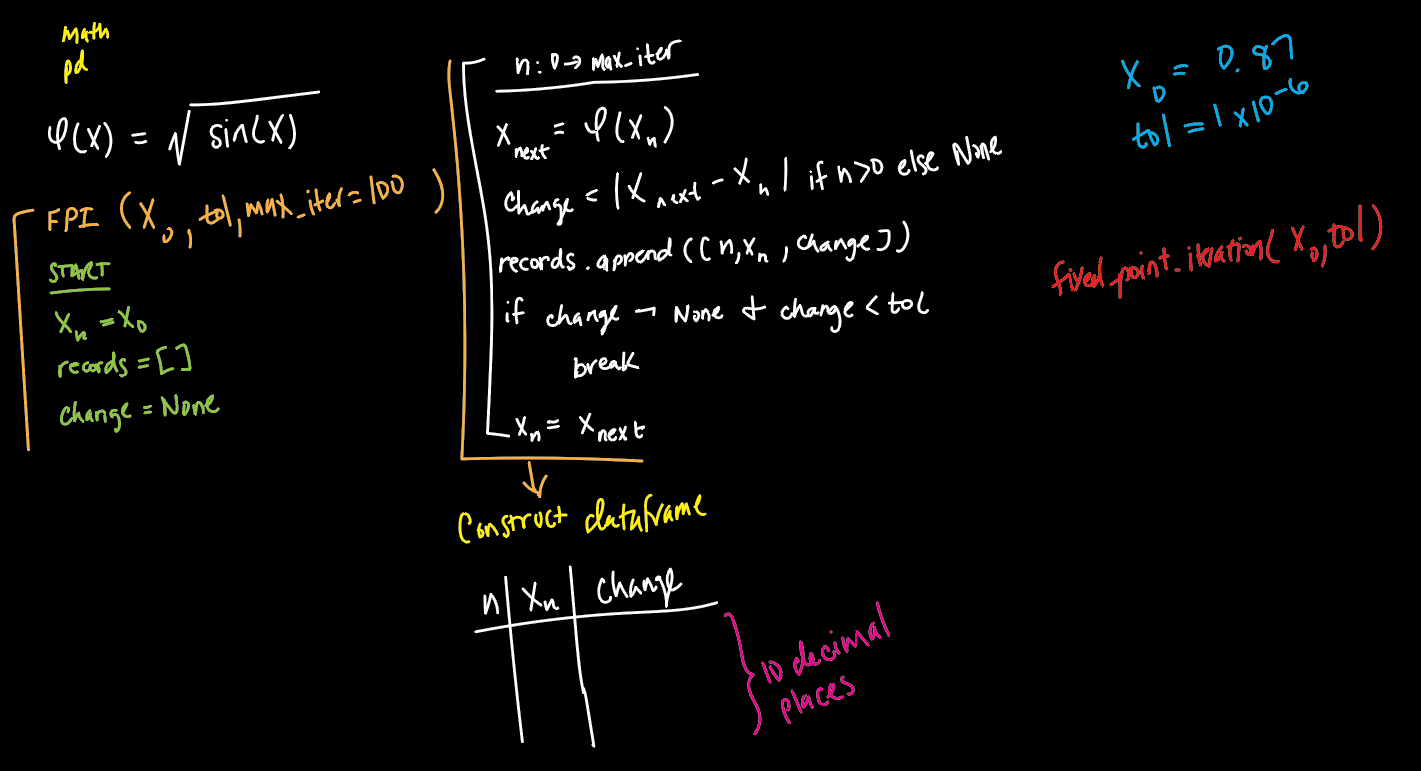 math
pd
φ(x) = √sin(x)
FPI (x₀, tol, max_iter=100)
START
xₙ = x₀
records = []
change = None
n: 0 → max_iter
x_next = φ(xₙ)
change = |x_next - xₙ| if n>0 else None
records.append([n, xₙ, change])
if change ¬ None & change < tol
break
xₙ = x_next
Construct dataframe
n | xₙ | change
10 decimal
places
x₀ = 0.87
tol = 1 x 10⁻⁶
fixed_point_iteration(x₀, tol)